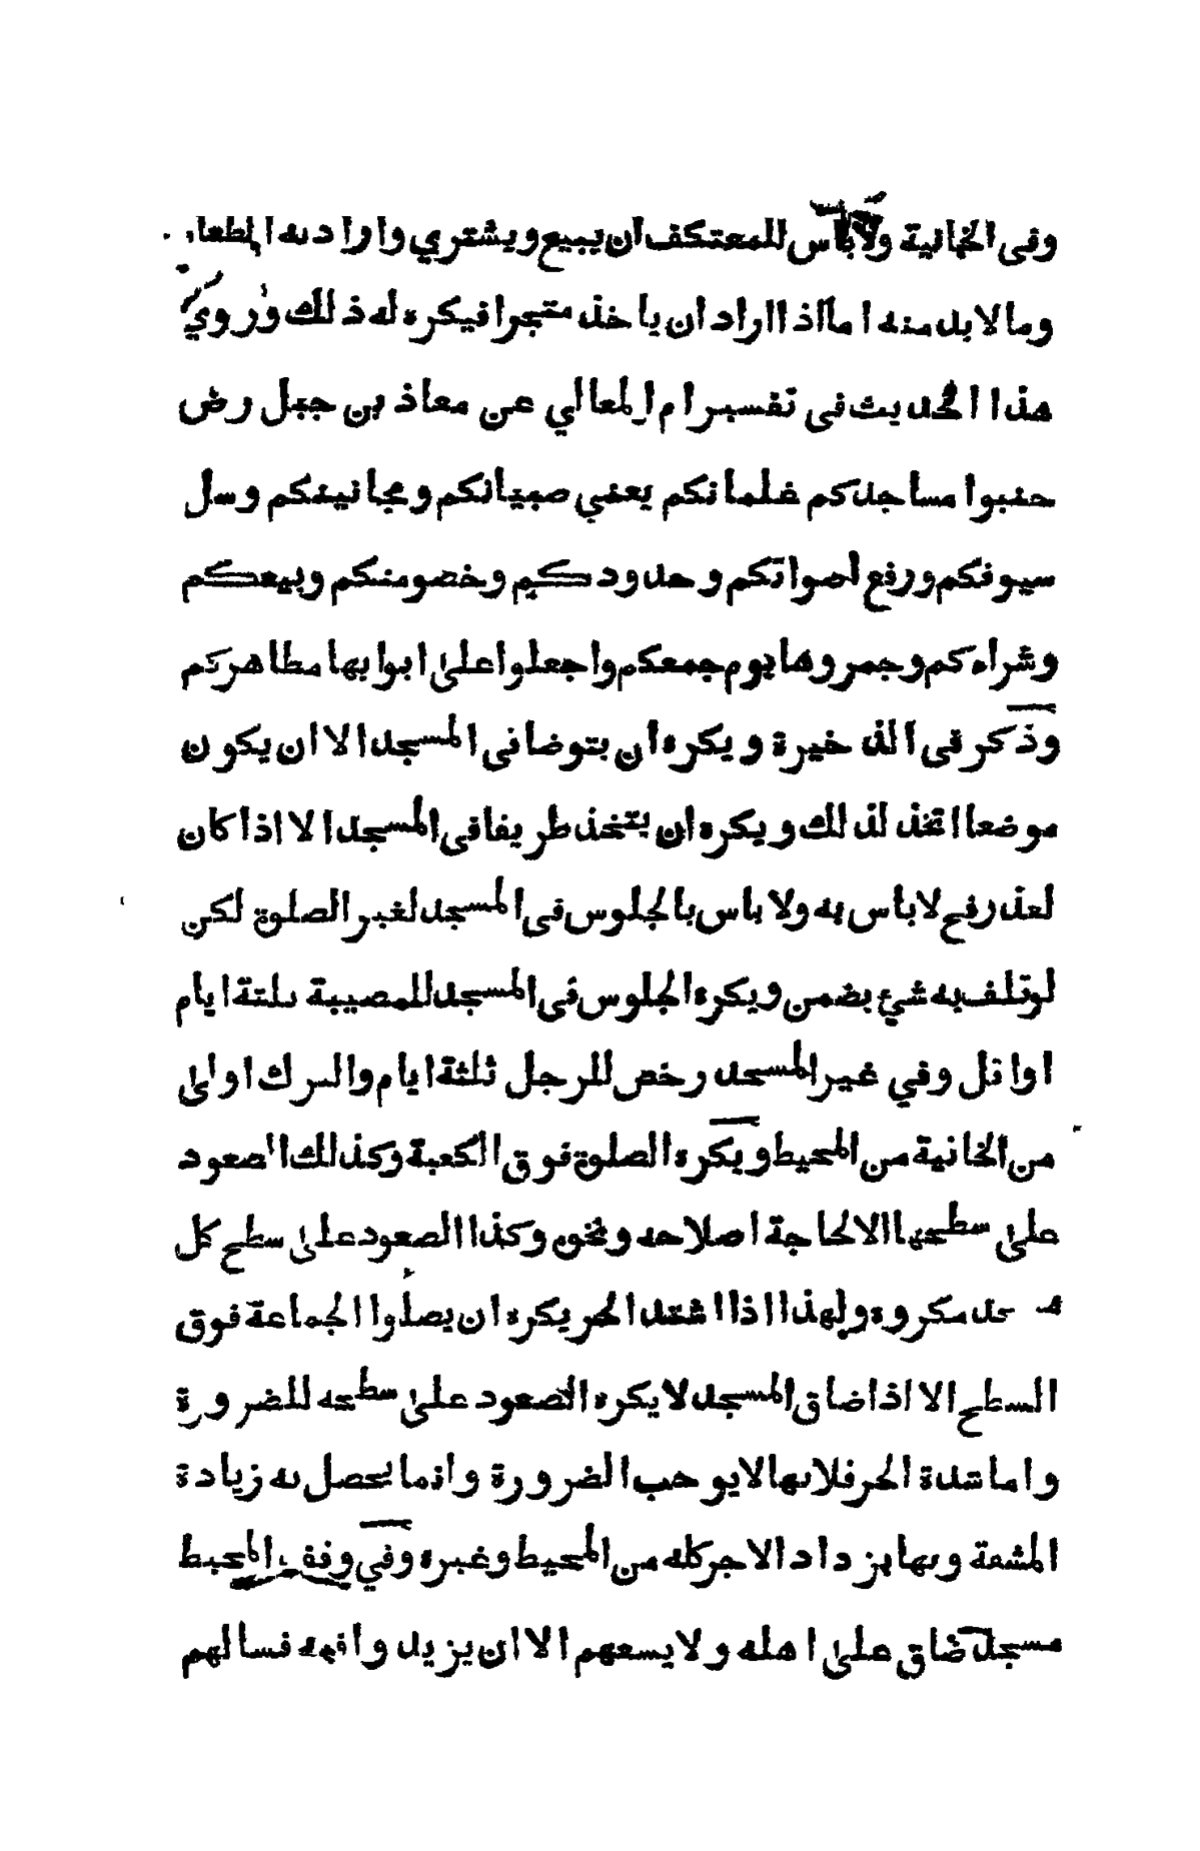 وفى الخانية ولاباس للمعتكف ان يبيع ويشتري واراد به الطعام
وما لا بد منه اما اذا اراد ان ياخذ متجرا فيكره له ذلك وروي
هذا الحديث فى تفسير ام المعالي عن معاذ بن جبل رض
جنبوا مساجدكم غلمانكم يعني صبيانكم ومجانينكم وسل
سيوفكم ورفع اصواتكم وحدودكم وخصومتكم وبيعكم
وشراءكم وجمروها يوم جمعكم واجعلوا على ابوابها مطاهركم
وذكر فى الذخيرة ويكره ان يتوضا فى المسجد الا ان يكون
موضعا اتخذ لذلك ويكره ان يتخذ طريقا فى المسجد الا اذا كان
لعذر فح لا باس به ولا باس بالجلوس فى المسجد لغير الصلوة لكن
لو تلف به شئ يضمن ويكره الجلوس فى المسجد للمصيبة ثلثة ايام
او اقل وفي غير المسجد رخص للرجل ثلثة ايام والترك اولى
من الخانية من المحيط ويكره الصلوة فوق الكعبة وكذلك الصعود
على سطحها الا لحاجة اصلاحه ونحوه وكذا الصعود على سطح كل
مسجد مكروه ولهذا اذا اشتد الحر يكره ان يصلوا الجماعة فوق
السطح الا اذا ضاق المسجد لا يكره الصعود على سطحه للضرورة
واما شدة الحر فلانها لا يوجب الضرورة وانما يحصل به زيادة
المشقة وبها يزداد الاجر كله من المحيط وغيره وفي وقف المحيط
مسجد ضاق على اهله ولا يسعهم الا ان يزيد وافيه فسالهم